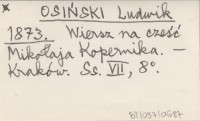 × OSIŃSKI Ludwik
1873. Wiersz na cześć
Mikołaja Kopernika. —
Kraków. Ss. VII, 8°.
87/037/0587